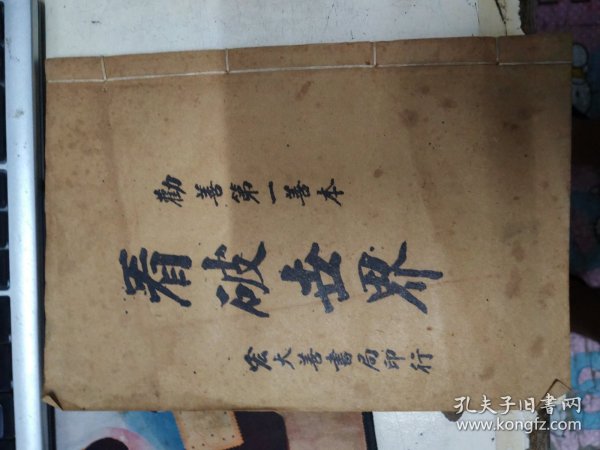 勸善第一善本
看破世界
宏大善書局印行
孔夫子旧书网
www.kongfz.com